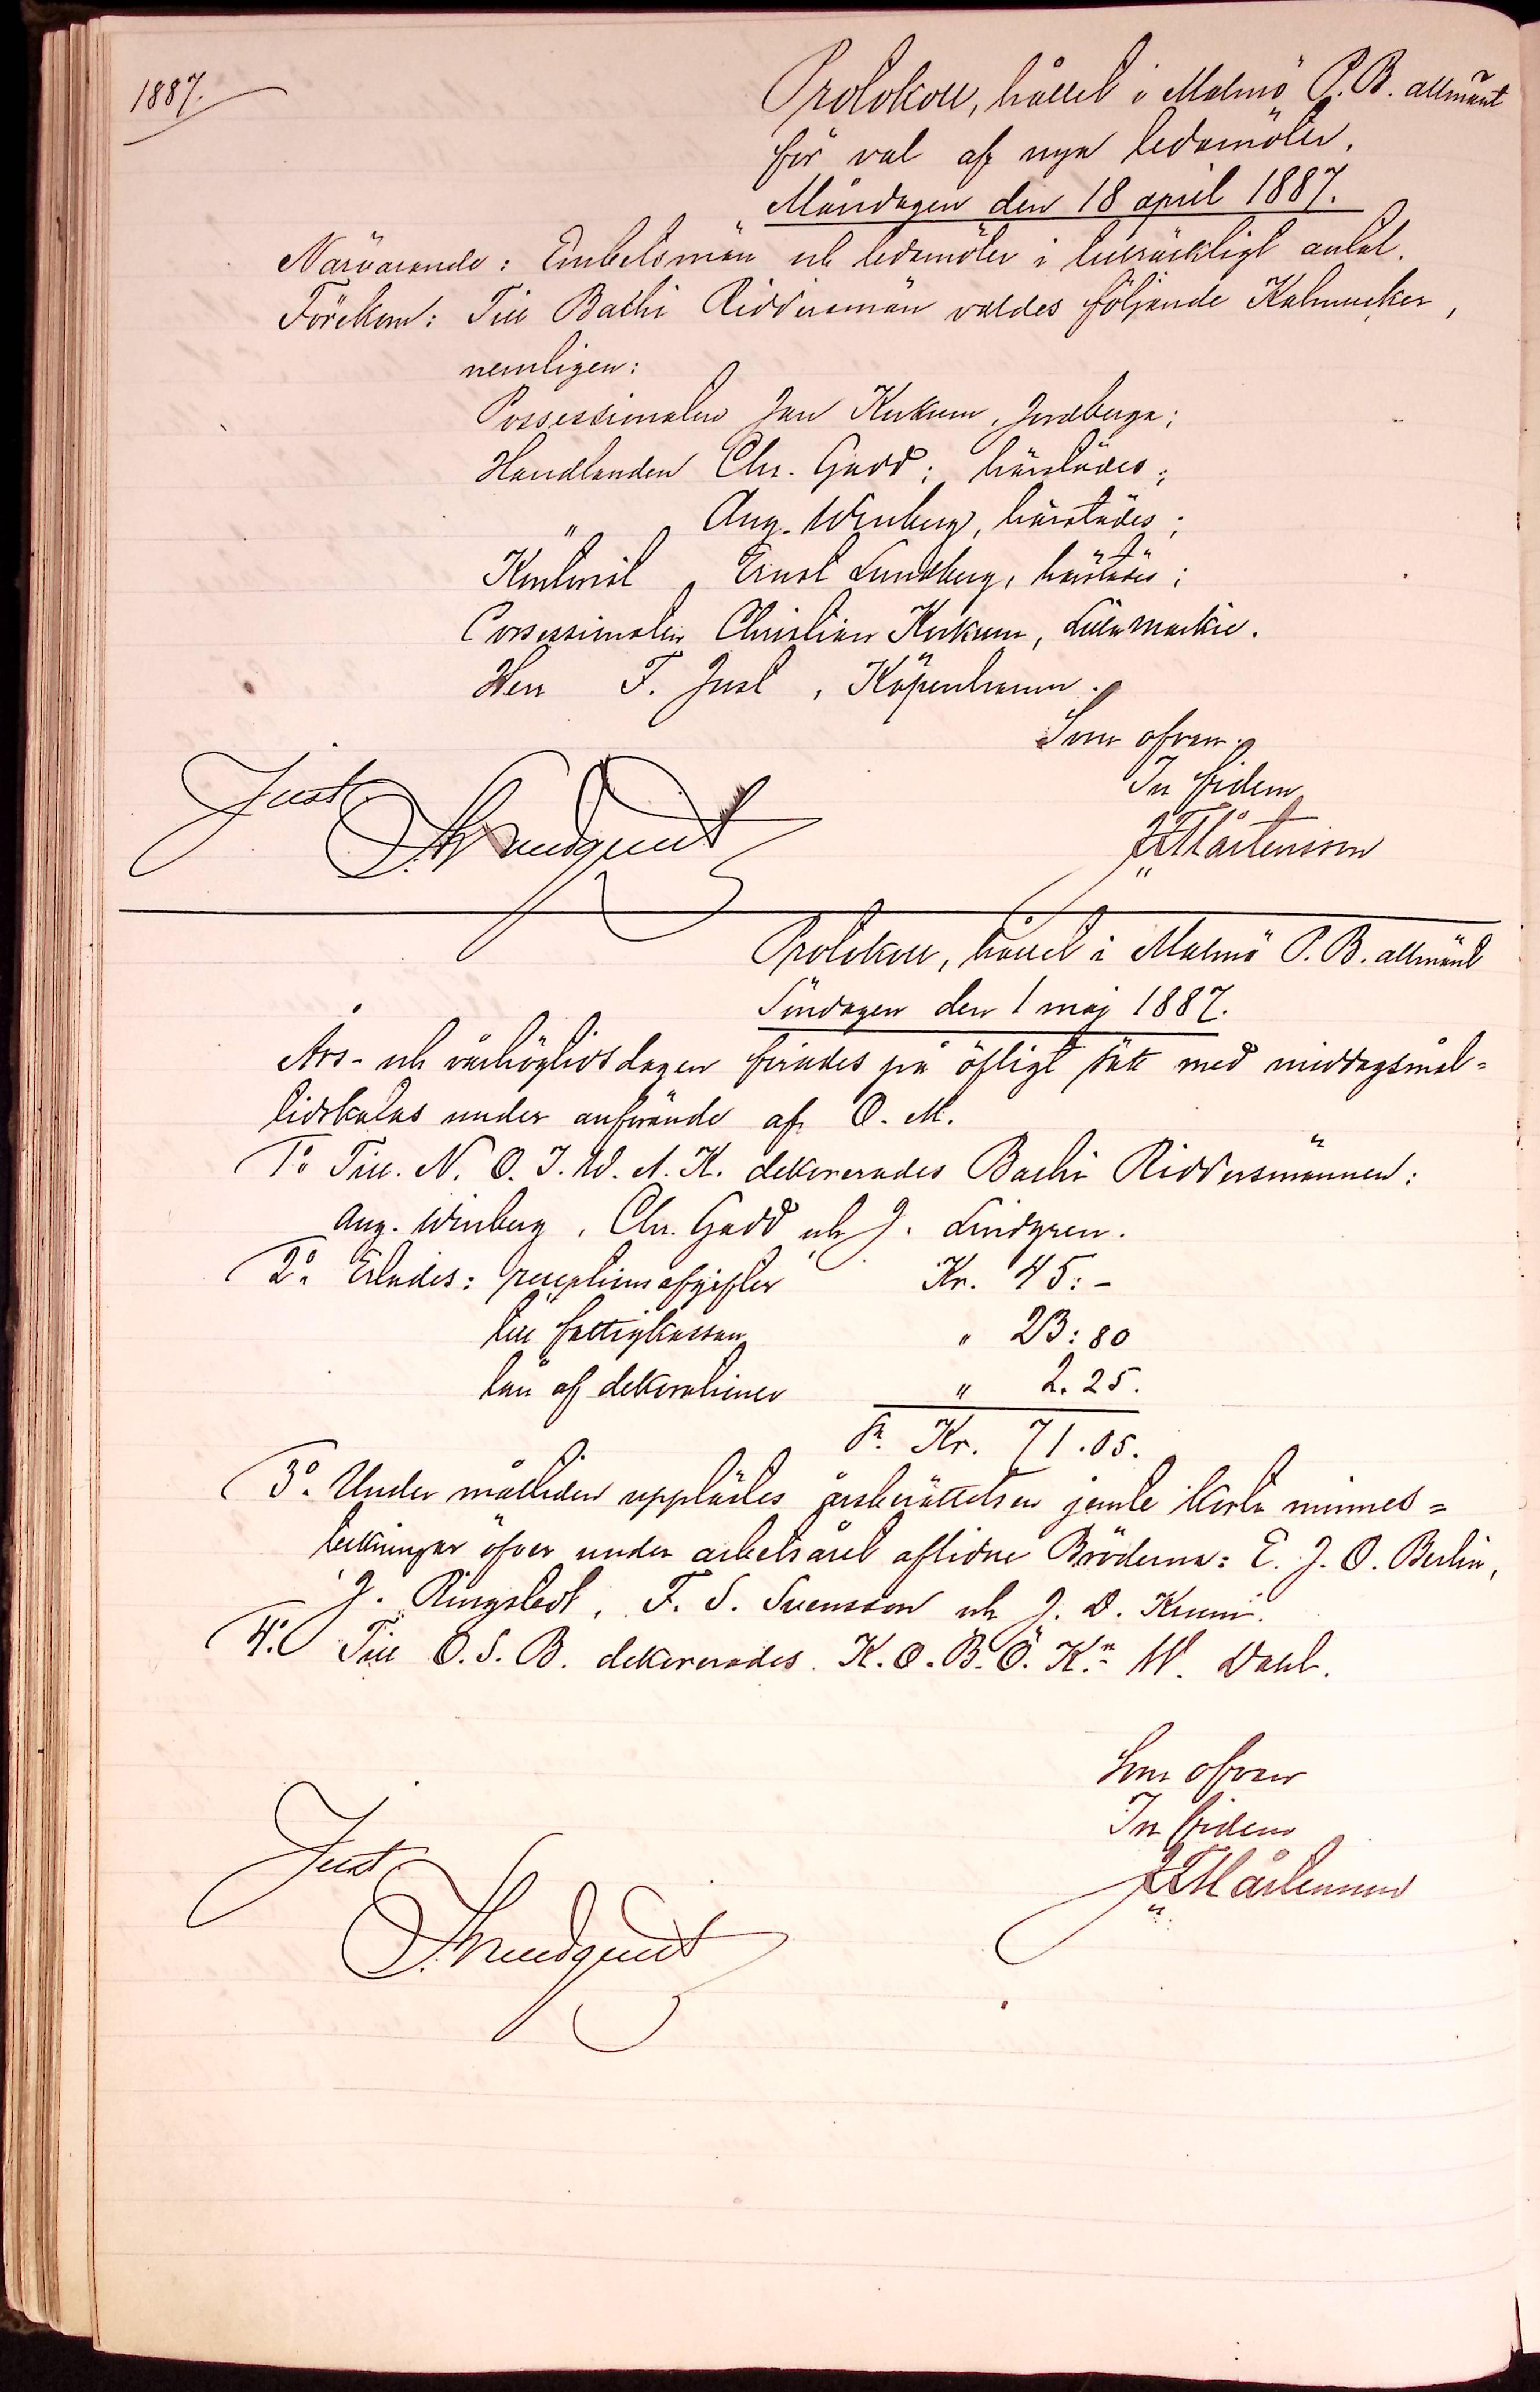 1887.
Protokoll, hållet i Malmö P. B. allmänt
för val af nya ledamöter.
Måndagen den 18 april 1887.
Närvarande: Embetsmän och ledamöter i tillräckligt antal.
Förekom: Till Bacchi Riddersmän valdes följande Kalmucker,
nemligen:
Possessionaten Jan Kockum,
Handlanden Chr. Gadd; härstädes;
" Aug. Winberg, härstädes;
Ernst Lundberg, härstädes;
Possessionaten Christian Kockum, Lilla Markie.
Herr F. Just, Köpenhamn.
Som ofvan.
In fidem
Just.
Mårtensson
Protokoll, hållet i Malmö P. B. allmänt
Söndagen den 1 maj 1887.
Års- och vårhögtidsdagen firades på öfligt sätt med middagsmål=
tidskalas under anförande af O. M.
1o Till N. O. I. W. A. K. dekorerades Bacchi Riddersmännen:
Aug. Winberg, Chr. Gadd och J. Lindgren.
2o Erlades: receptionsafgifter Kr. 45:-
till fattigkassan " 23:80
lån af dekorationer " 2.25.
Sa Kr. 71.05.
3o Under måltiden upplästes årsberättelsen jemte korta minnes=
teckningar öfver under arbetsåret aflidne Bröderna: E. J. O. Berlin,
J. Ringstedt, F. S. Svensson och J. D.
4o Till O. S. B. dekorerades K. O. B. Ö. Kn W. Dahl.
Som ofvan
In fidem
Just.
Mårtensson